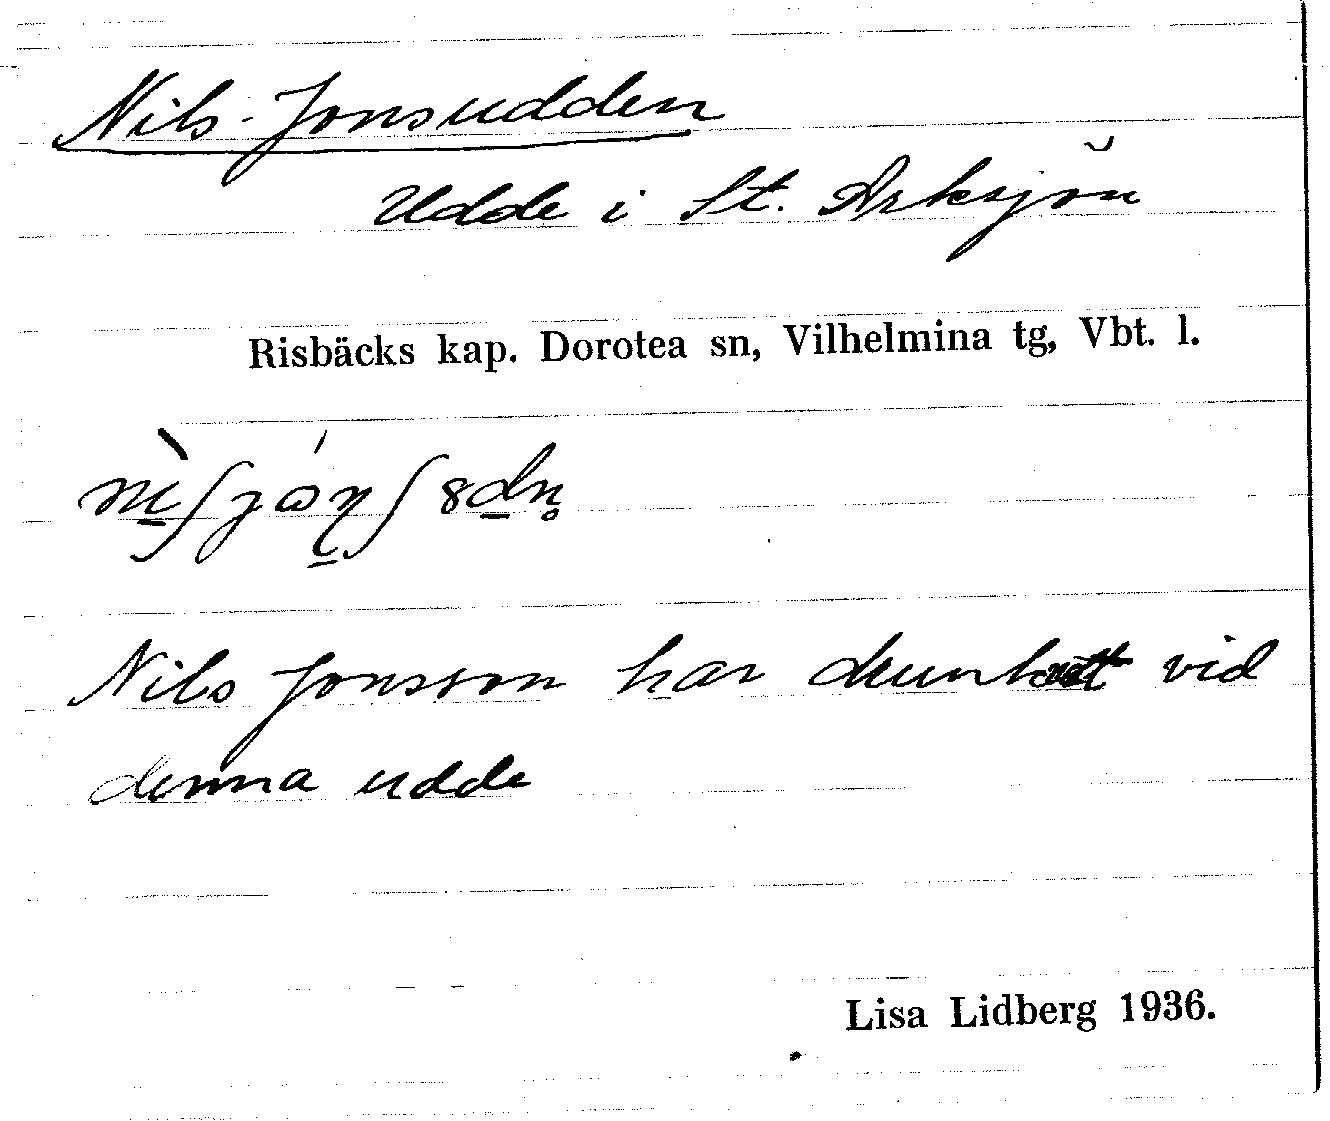 Nils-Jonsudden
Udde i St. Arksjön
Risbäcks kap. Dorotea sn, Vilhelmina tg, Vbt. l.
Nils Jonsson har drunknat vid
denna udde
Lisa Lidberg 1936.